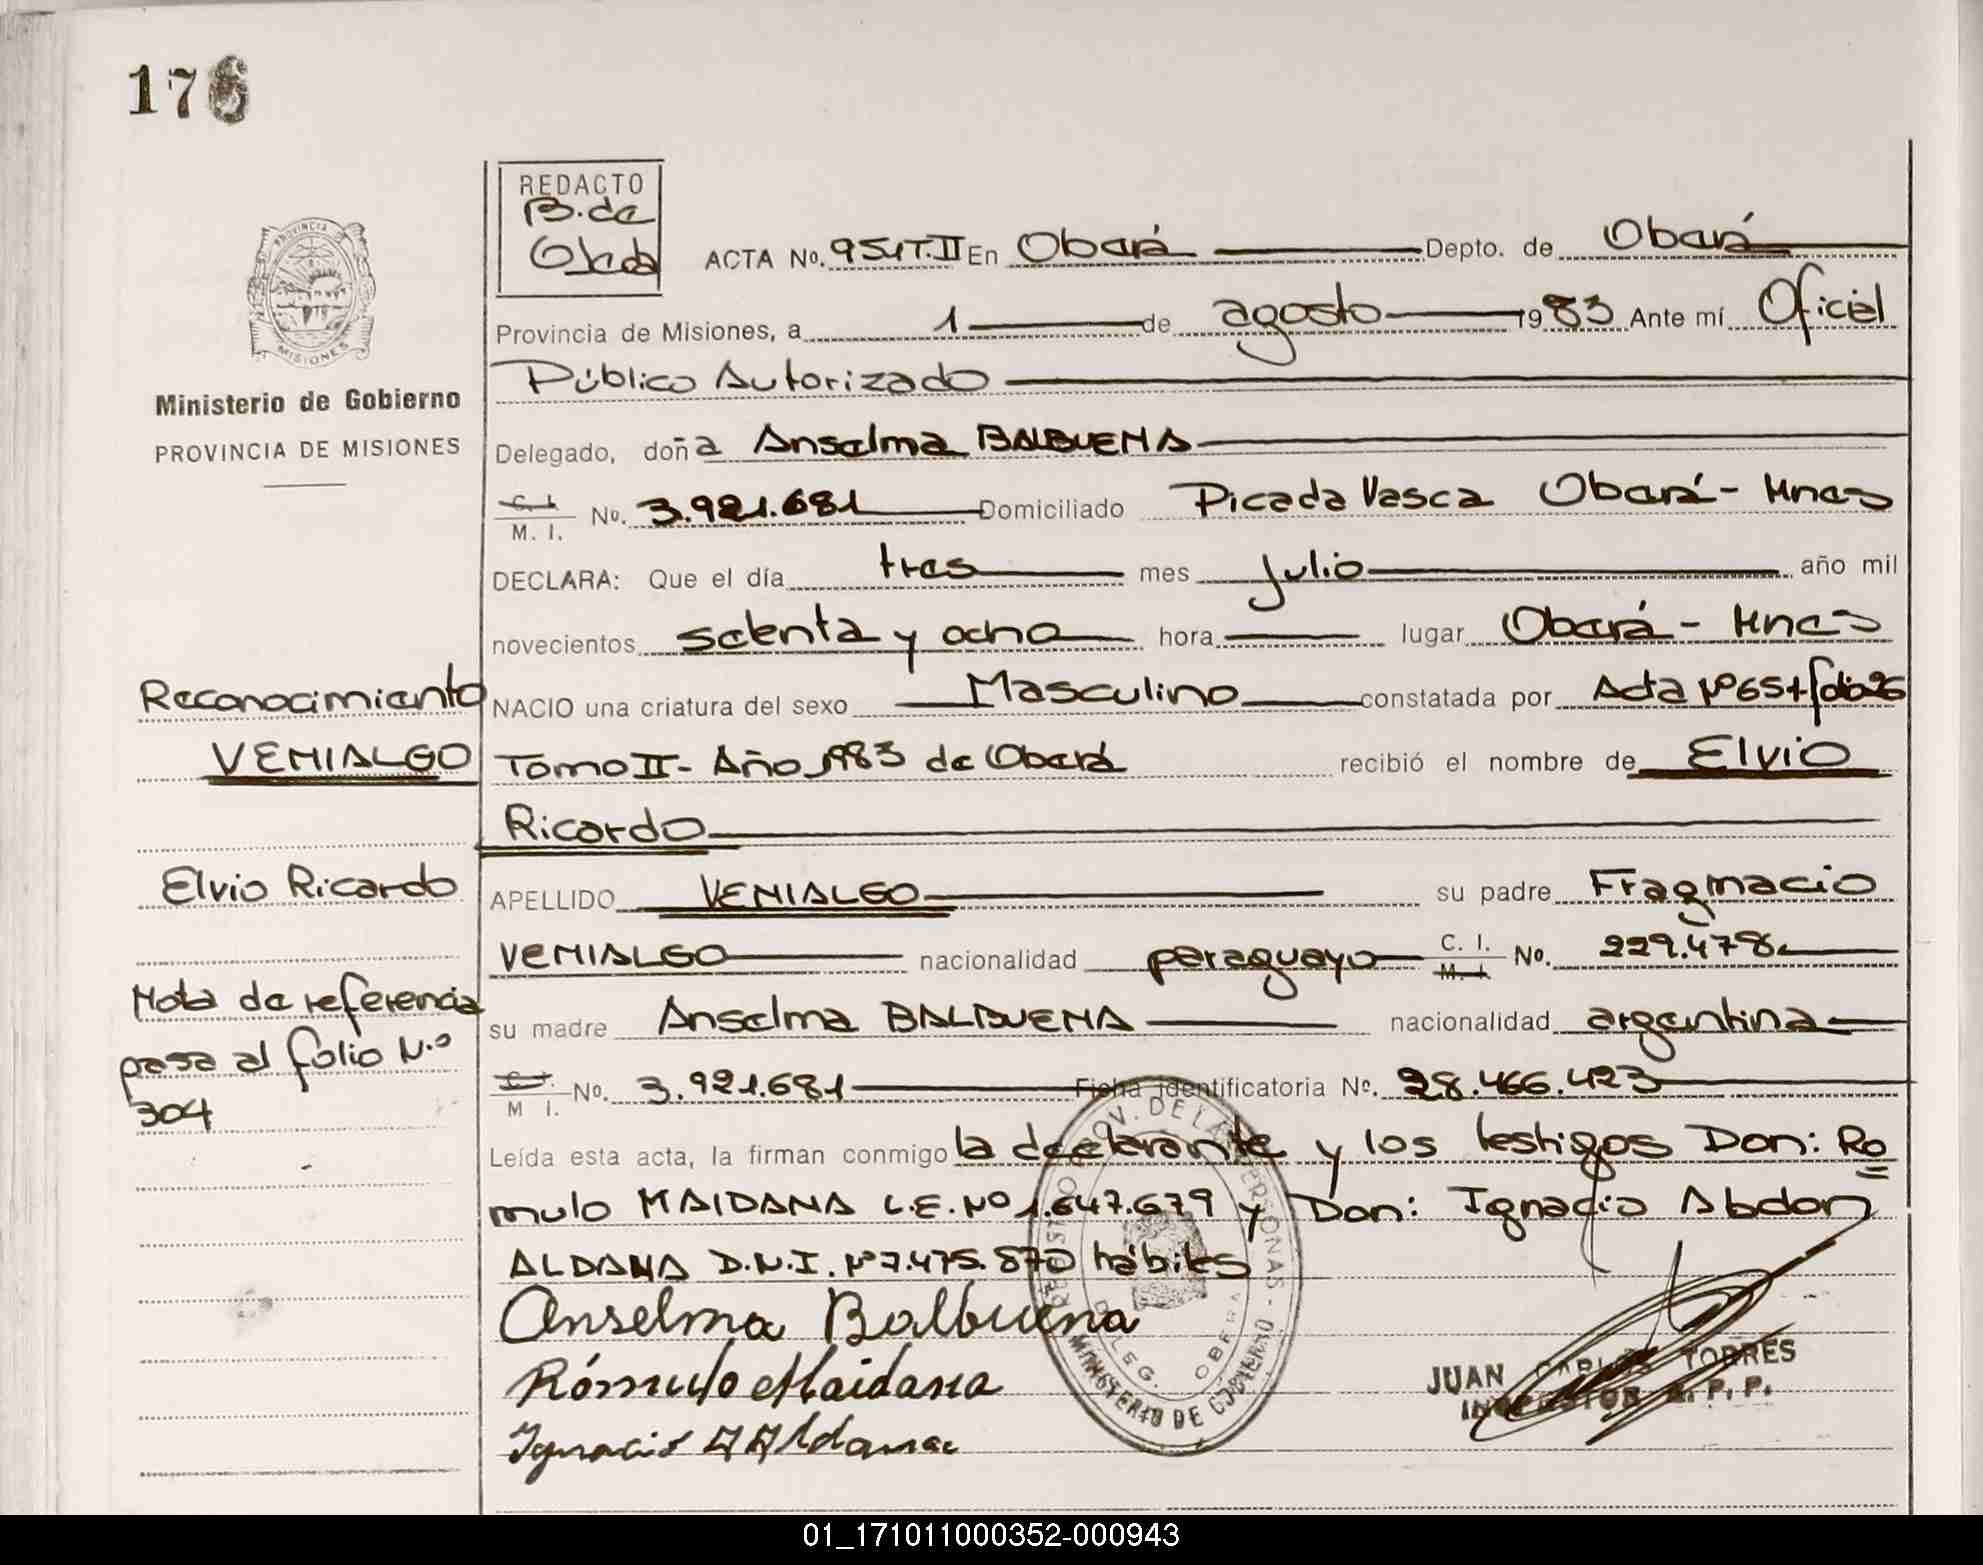 176
REDACTO
B. de
Ojeda
PROVINCIA
MISIONES
Ministerio de Gobierno
PROVINCIA DE MISIONES
ACTA No. 954T.II En Oberá Depto. de Oberá
Provincia de Misiones, a 1 de agosto 1983 Ante mí Oficial
Público Autorizado
Delegado, doña Anselma BALBUENA
C. I.
M. I. No. 3.921.681 Domiciliado Picada Vasca Oberá - Mnes
DECLARA: Que el día tres mes julio año mil
novecientos setenta y ocho hora lugar Oberá - Mnes
NACIO una criatura del sexo Masculino constatada por Acta Nº 651 folio 26
Tomo II - Año 1983 de Oberá recibió el nombre de Elvio
Ricardo
APELLIDO VENIALGO su padre Fragnacio
VENIALGO nacionalidad paraguayo C. I. No. 229.478
M. I.
su madre Anselma BALBUENA nacionalidad argentina
C. I.
M I. No. 3.921.681 Ficha identificatoria No. 28.466.423
Leída esta acta, la firman conmigo la declarante y los testigos Don: Ro
mulo MAIDANA L.E. Nº 1.647.679 y Don: Ignacio Abdon
ALDANA D.N.I. Nº 7.475.870 hábiles
Anselma Balbuena
Rómulo Maidana
Ignacio A Aldana
JUAN CARLOS TORRES
INSPECTOR R. P. P.
MINISTERIO DE GOBIERNO
DELEG. OBERA
Reconocimiento
VENIALGO
Elvio Ricardo
Nota de referencia
pasa al folio N.º
304
01_171011000352-000943